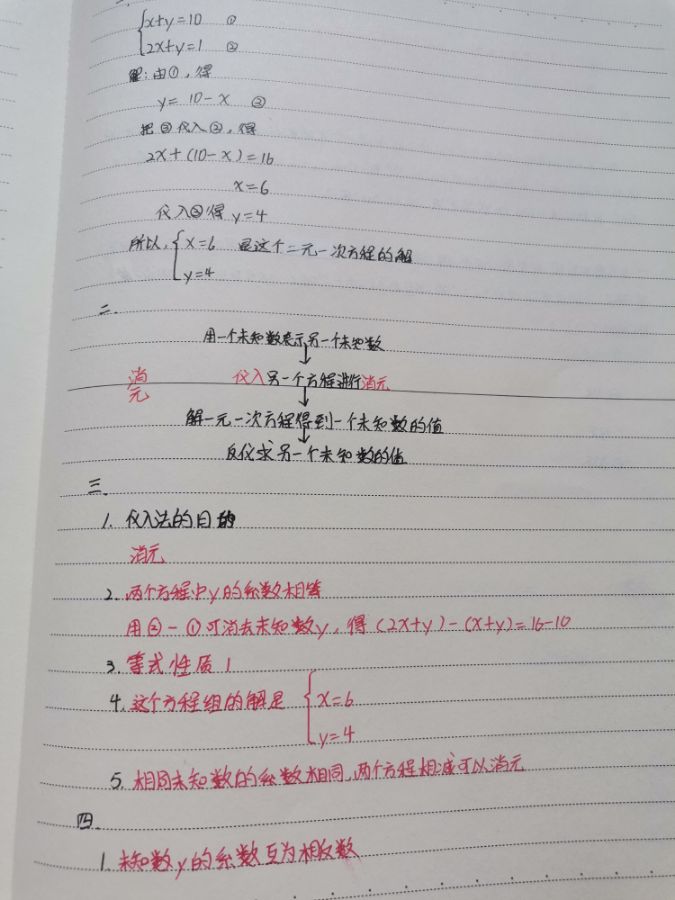 x+y=10 ①
2x+y=1 ②
解:由①,得
y=10-x ③
把③代入②,得
2x+(10-x)=16
x=6
代入③得 y=4
所以, x=6 是这个二元一次方程的解
y=4
二.
用一个未知数表示另一个未知数
↓
消元 代入另一个方程进行消元
↓
解一元一次方程得到一个未知数的值
↓
反代求另一个未知数的值
三.
1. 代入法的目的
消元
2. 两个方程中y的系数相等
用②-①可消去未知数y,得(2x+y)-(x+y)=16-10
3. 等式性质1
4. 这个方程组的解是 x=6
y=4
5. 相同未知数的系数相同,两个方程相减可以消元
四.
1. 未知数y的系数互为相反数